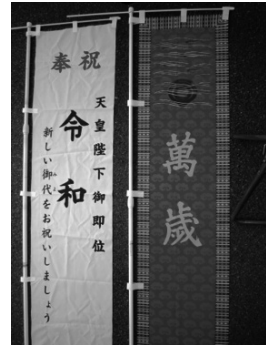 奉祝
天皇陛下御即位
令和
新しい御代をお祝いしましょう
萬歳